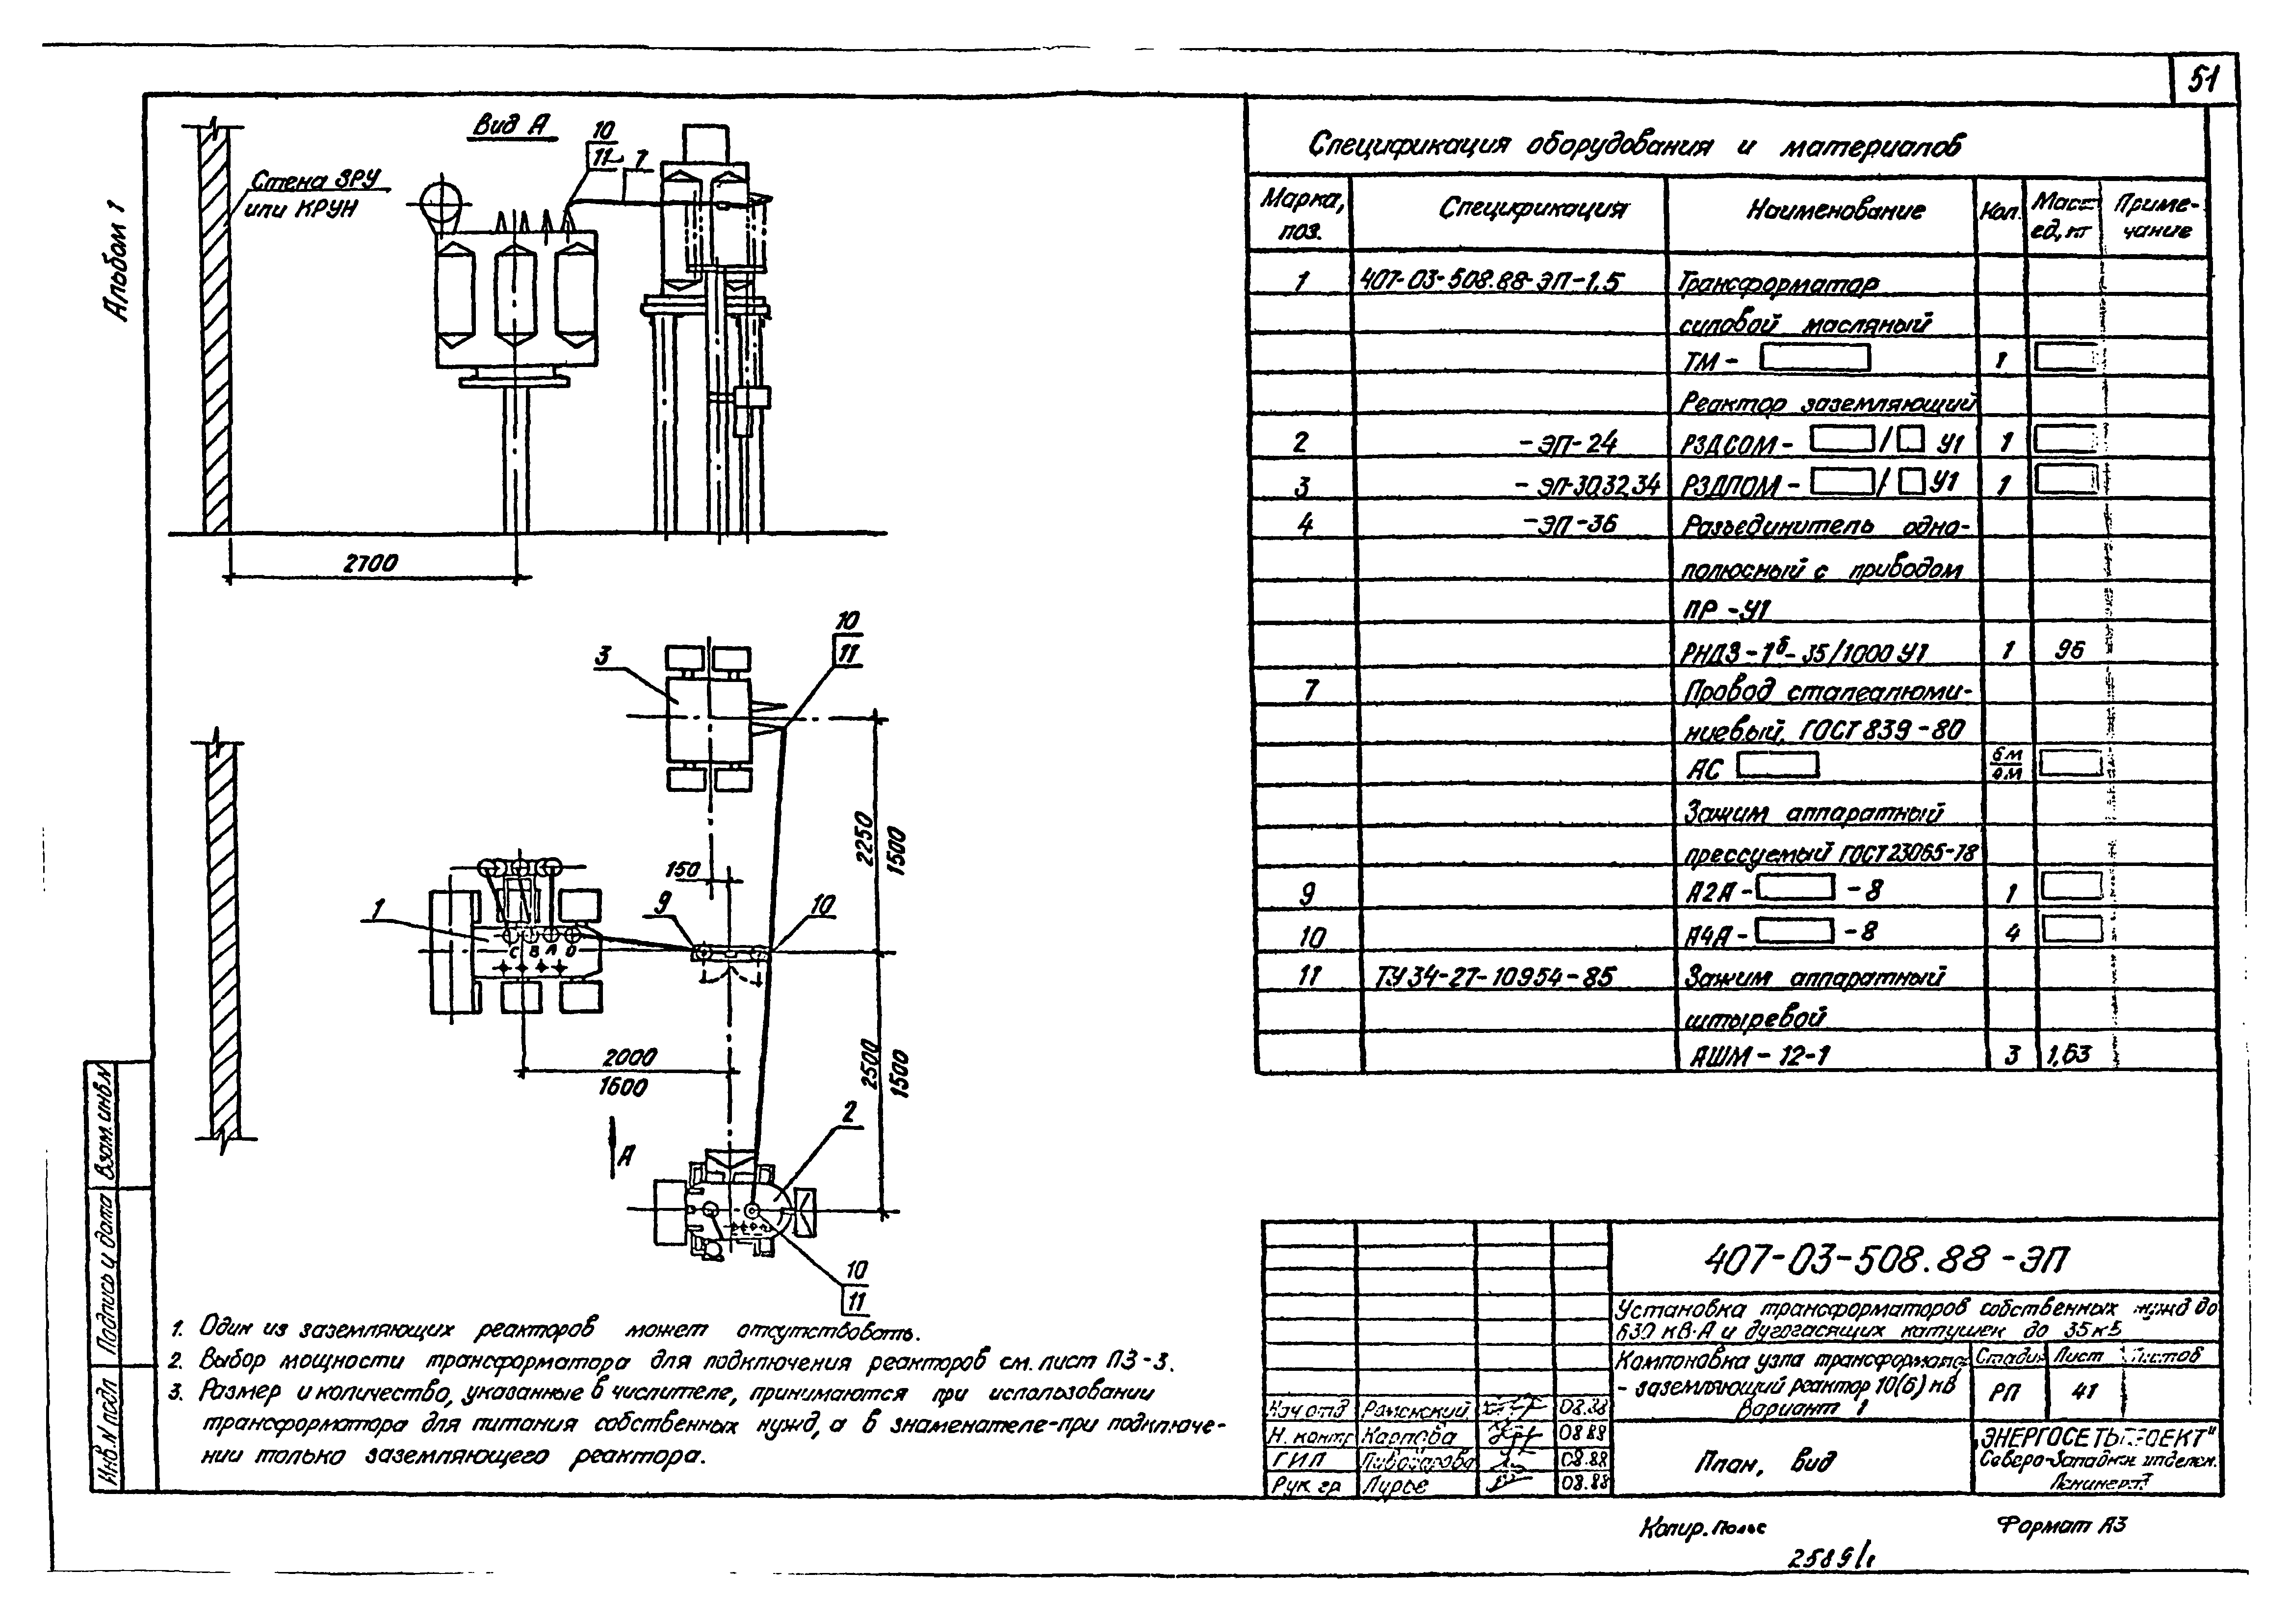 51
Альбом 1
Вид А
10
11
7
Стена ЗРУ
или КРУН
2700
10
11
3
2250
1500
150
9
10
1
С В А О
2000
1600
2500
1500
А
2
10
11
1. Один из заземляющих реакторов может отсутствовать.
2. Выбор мощности трансформатора для подключения реакторов см. лист ПЗ-3.
3. Размер и количество, указанные в числителе, принимаются при использовании
трансформатора для питания собственных нужд, а в знаменателе-при подключе-
нии только заземляющего реактора.
Спецификация оборудования и материалов
Марка, поз. Спецификация Наименование Кол. Масса ед, кг Приме-чание
1 407-03-508.88-ЭП-1.5 Трансформатор
силовой масляный
ТМ- 1
Реактор заземляющий
2 -ЭП-24 РЗДСОМ- / У1 1
3 -ЭП-30,32,34 РЗДПОМ- / У1 1
4 -ЭП-36 Разъединитель одно-
полюсный с приводом
ПР-У1
РНДЗ-1б-35/1000 У1 1 96
7 Провод сталеалюми-
ниевый, ГОСТ 839-80
АС 6м/4м
Зажим аппаратный
прессуемый ГОСТ 23065-78
9 А2А- -8 1
10 А4А- -8 4
11 ТУ 34-27-10954-85 Зажим аппаратный
штыревой
АШМ-12-1 3 1,63
407-03-508.88-ЭП
Установка трансформаторов собственных нужд до
630 кВ·А и дугогасящих катушек до 35 кВ
Компоновка узла трансформатор
- заземляющий реактор 10(6) кВ
Вариант 1
Стадия Лист Листов
РП 41
Нач отд Роменский 08.88
Н. контр Карпова 08.88
ГИП 08.88
Рук гр Лурье 08.88
План, вид
"ЭНЕРГОСЕТЬПРОЕКТ"
Северо-Западн. отделен.
Ленинград
Копир.
Формат А3
Инв. N подл
Подпись и дата
Взам. инв. N